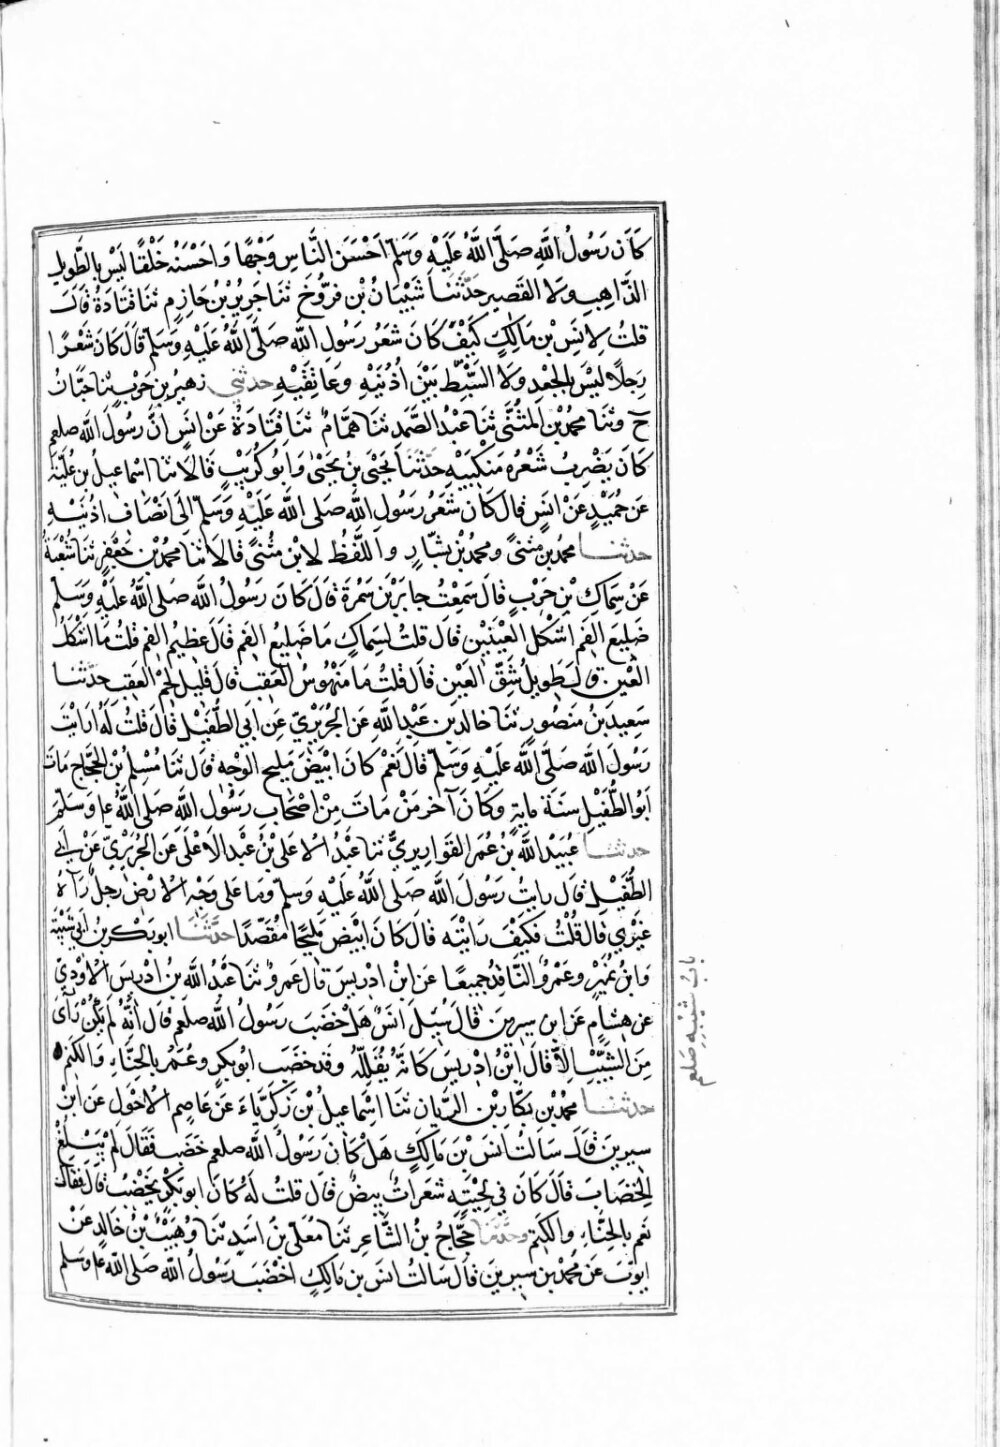 كَانَ رَسُولُ اللَّهِ صَلَّى اللَّهُ عَلَيْهِ وَسَلَّمَ اَحْسَنَ النَّاسِ وَجْهًا وَاَحْسَنُهُ خَلْقًا لَيْسَ بِالطَّوِيلِ
الذَّاهِبِ وَلَا القَصِيرِ حَدَّثَنَا شَيْبَانُ بْنُ فَرُّوخَ ثَنَا جَرِيرُ بْنُ حَازِمٍ ثَنَا قَتَادَةُ قَالَ
قلتُ لِانَسِ بْنِ مَالِكٍ كَيْفَ كَانَ شَعَرُ رَسُولِ اللَّهِ صَلَّى اللَّهُ عَلَيْهِ وَسَلَّمَ قَالَ كَانَ شَعْرًا
رَجِلًا لَيْسَ بِالجَعْدِ وَلَا السَّبْطِ بَيْنَ اُذُنَيْهِ وَعَاتِقَيْهِ حدثني زهير بن حَرْبٍ ثنا حَبَّانُ
ح وَثنَا محمد بْنُ المُثَنَّى ثنَا عَبْدُ الصَّمَدِ ثنَا هَمَّامٌ ثَنَا قَتَادَةُ عَنْ اَنَسٍ اَنَّ رَسُولَ اللَّه صلعم
كَانَ يَضْرِبُ شَعْرُهُ مَنْكِبَيْهِ حَدَّثَنَا يَحْيَى بْنُ يَحْيَى وَابُو كُرَيْبٍ قَالَا ثنا اسْمَاعِيلُ بن عُلَيَّةَ
عَنْ حُمَيْدٍ عَنْ اَنَسٍ قَالَ كَانَ شَعَرُ رَسُولِ اللَّهِ صلى اللَّه عَلَيْهِ وَسَلَّمَ الَى اَنْصَافِ اُذُنَيْهِ
حدثنا محمد بن مثنىً ومحمد بْنُ بَشَّارٍ وَاللَّفْظُ لِابْنِ مُثَنىً قَالَا ثنا محمد بْنُ جَعْفَرٍ ثنَا شُعْبَةُ
عَنْ سِمَاكِ بْنِ حَرْبٍ قَالَ سَمِعْتُ جابرَ بْنَ سَمُرَةَ قَالَ كَانَ رَسُولُ اللَّه صَلى اللَّهُ عَلَيْهِ وَسَلَّمَ
ضَلِيعَ الفَمِ اَشْكَلَ العَيْنَيْنِ قَالَ قلتُ لِسِمَاكٍ مَا ضَلِيعُ الفَمِ قَالَ عَظِيمُ الفم قلتُ مَا اَشْكَلُ
العَيْنِ قال طَوِيلُ شِقِّ العَيْنِ قَالَ قُلْتُ مَا مَنْهُوسُ العَقِبِ قَالَ قَلِيلُ لَحْمِ العَقِبِ حدَّثنا
سَعِيدُ بْنُ مَنْصُورٍ ثنَا خالد بن عَبْدِ اللَّهِ عَنِ الجُرَيْرِيِّ عَنْ اَبِي الطُّفَيْلِ قَالَ قُلْتُ لَهُ اَرَايْتَ
رَسُولَ اللَّه صَلَّى اللَّهُ عَلَيْهِ وَسَلَّمَ قَالَ نَعَمْ كَانَ اَبْيَضَ مَلِيحَ الوَجْهِ قال ثنَا مُسْلِمُ بْنُ الحَجَّاجِ مَاتَ
اَبُو الطُّفَيْلِ سَنَةَ مِايَةٍ وَكَانَ آخِرَ مَنْ مَاتَ مِنْ اَصْحَابِ رَسُولِ اللَّه صَلى اللَّهُ ع‍ وَسَلَّمَ
حدثنا عُبَيْدُ اللَّهِ بْنُ عُمَرَ القَوَارِيرِيُّ ثنا عَبْدُ الاعلَى بْنُ عَبْدِ الاَعْلَى عَنِ الجُرَيْرِيِّ عَنْ اَبِي
الطُّفَيْلِ قَالَ رايتُ رَسُولَ اللَّه صَلى اللَّهُ عَلَيْهِ وَسَلَّمَ وَمَا عَلَى وَجْهِ الاَرْضِ رَجُلٌ رَآهُ
غَيْرِي قَالَ قُلْتُ فَكَيْفَ رَايْتَهُ قَالَ كَانَ اَبْيَضَ مَلِيحًا مُقَصَّدًا حَدَّثَنَا ابو بَكْرِ بن اَبِي شَيْبَةَ
وَابنُ نُمَيْرٍ وعَمْرٌو النَّاقِدُ جَمِيعًا عَنْ ابْنِ اِدْرِيسَ قَالَ عَمرٌو ثَنَا عَبْدُ اللَّه بْنُ اِدْرِيسَ الاَوْدِيُّ
عن هِشَامٍ عَنِ ابنِ سِيرِينَ قَالَ سُيِلَ اَنَسٌ هَلْ خَضَبَ رَسُولُ اللَّه صلعم قَالَ اِنَّهُ لَمْ يَكُنْ رَاَى
مِنَ الشَّيْبِ اِلَّا قَالَ ابْنُ اِدْرِيسَ كَانَّهُ يُقَلِّلُهُ وقد خَضَبَ ابُو بكرٍ وعُمَرُ بِالحِنَّاءِ وَالكَتَمِ
حدثنا محمد بْنُ بَكَّارِ بْنِ الرَّيَّانِ ثنَا اِسْمَاعِيلُ بْنُ زَكَرِيَّاءَ عَنْ عَاصِمٍ الاَحْوَلِ عَنِ ابْنِ
سيرينَ قال سَالتُ انَسَ بْنَ مَالِكٍ هَلْ كَانَ رَسُولُ اللَّه صلعم خَضَبَ فَقَالَ لَمْ يَبْلُغِ
الخِضَابَ قَالَ كَانَ فِي لِحْيَتِهِ شَعَرَاتٌ بِيضٌ قَالَ قلتُ لَهُ كَانَ ابو بَكْرٍ يَخْضِبُ قَالَ فقال
نَعَم بِالحِنَّاءِ وَالكَتَمِ وحَدَّثَنا حَجَّاجُ بنُ الشَّاعِرِ ثَنَا مُعَلَّى بْنُ اَسَدٍ ثنَا وُهَيْبُ بْنُ خَالِدٍ عَنْ
ايوبَ عَنْ محمدِ بن سِيرِينَ قَالَ سَالتُ انَسَ بن مَالِكٍ اَخَضَبَ رَسُولُ اللَّه صَلى اللَّه ع‍ وَسَلم
باب شَيْبِهِ صَلعم